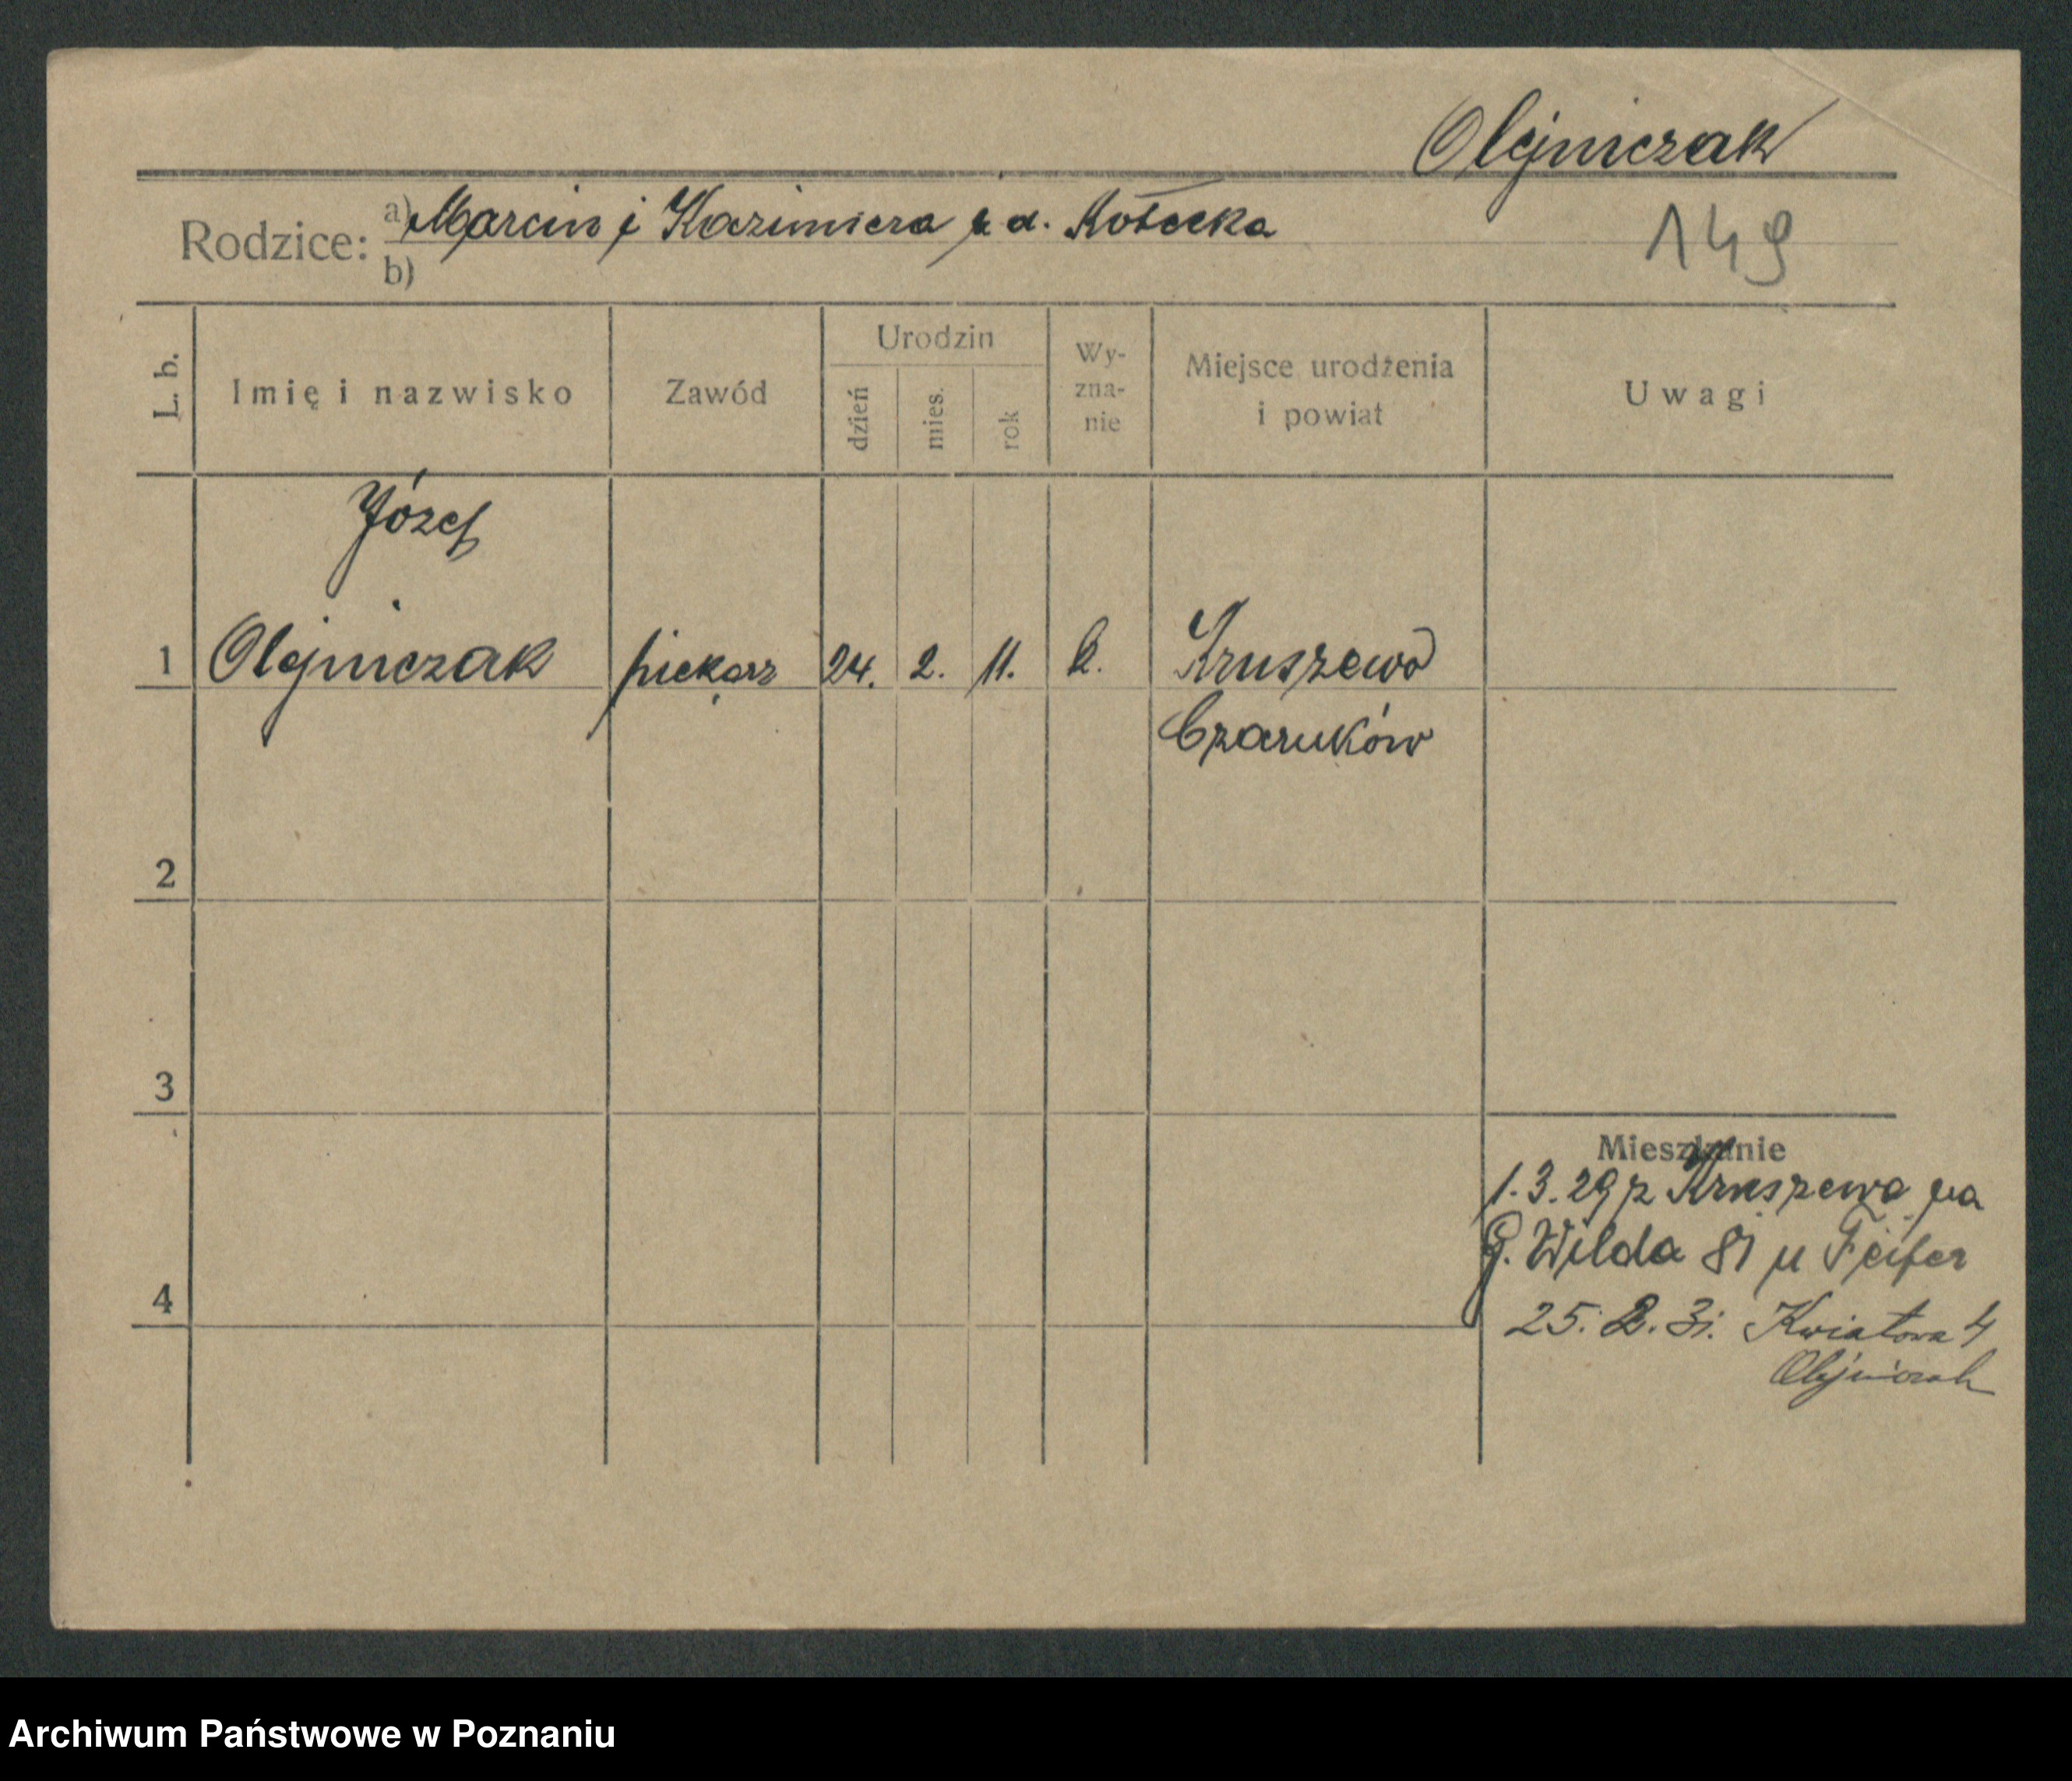 Olejniczak
Rodzice: a) Marcin i Kazimiera z d. Kotecka
149
b)
L. b.
Imię i nazwisko
Zawód
Urodzin
dzień
mies.
rok
Wy-
zna-
nie
Miejsce urodżenia
i powiat
Uwagi
Józef
1 Olejniczak piekarz 24. 2. 11. k. Kruszewo
Czarnków
2
3
4
Mieszkanie
1.3.29 z Kruszewa na
G. Wilda 81 u Fejfer
25. 2. 31. Kwiatowa 4
Olejniczak
Archiwum Państwowe w Poznaniu